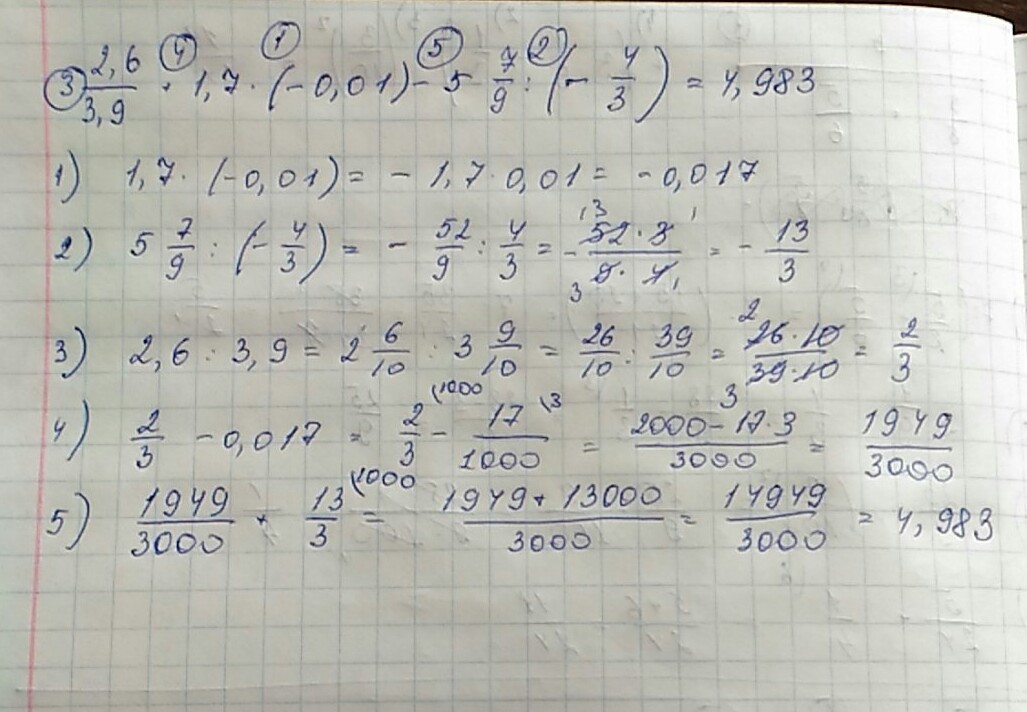 ③ 2,6/3,9 ④ + 1,7 · ① (-0,01) ⑤ - 5 7/9 ② : (- 4/3) = 4,983
1) 1,7 · (-0,01) = - 1,7 · 0,01 = -0,017
2) 5 7/9 : (- 4/3) = - 52/9 : 4/3 = - 52 · 3/9 · 4 = - 13/3
3) 2,6 : 3,9 = 2 6/10 : 3 9/10 = 26/10 : 39/10 = 26 · 10/39 · 10 = 2/3
4) 2/3 - 0,017 = 2/3 - 17/1000 = 2000 - 17 · 3/3000 = 1949/3000
5) 1949/3000 + 13/3 = 1949 + 13000/3000 = 14949/3000 = 4,983